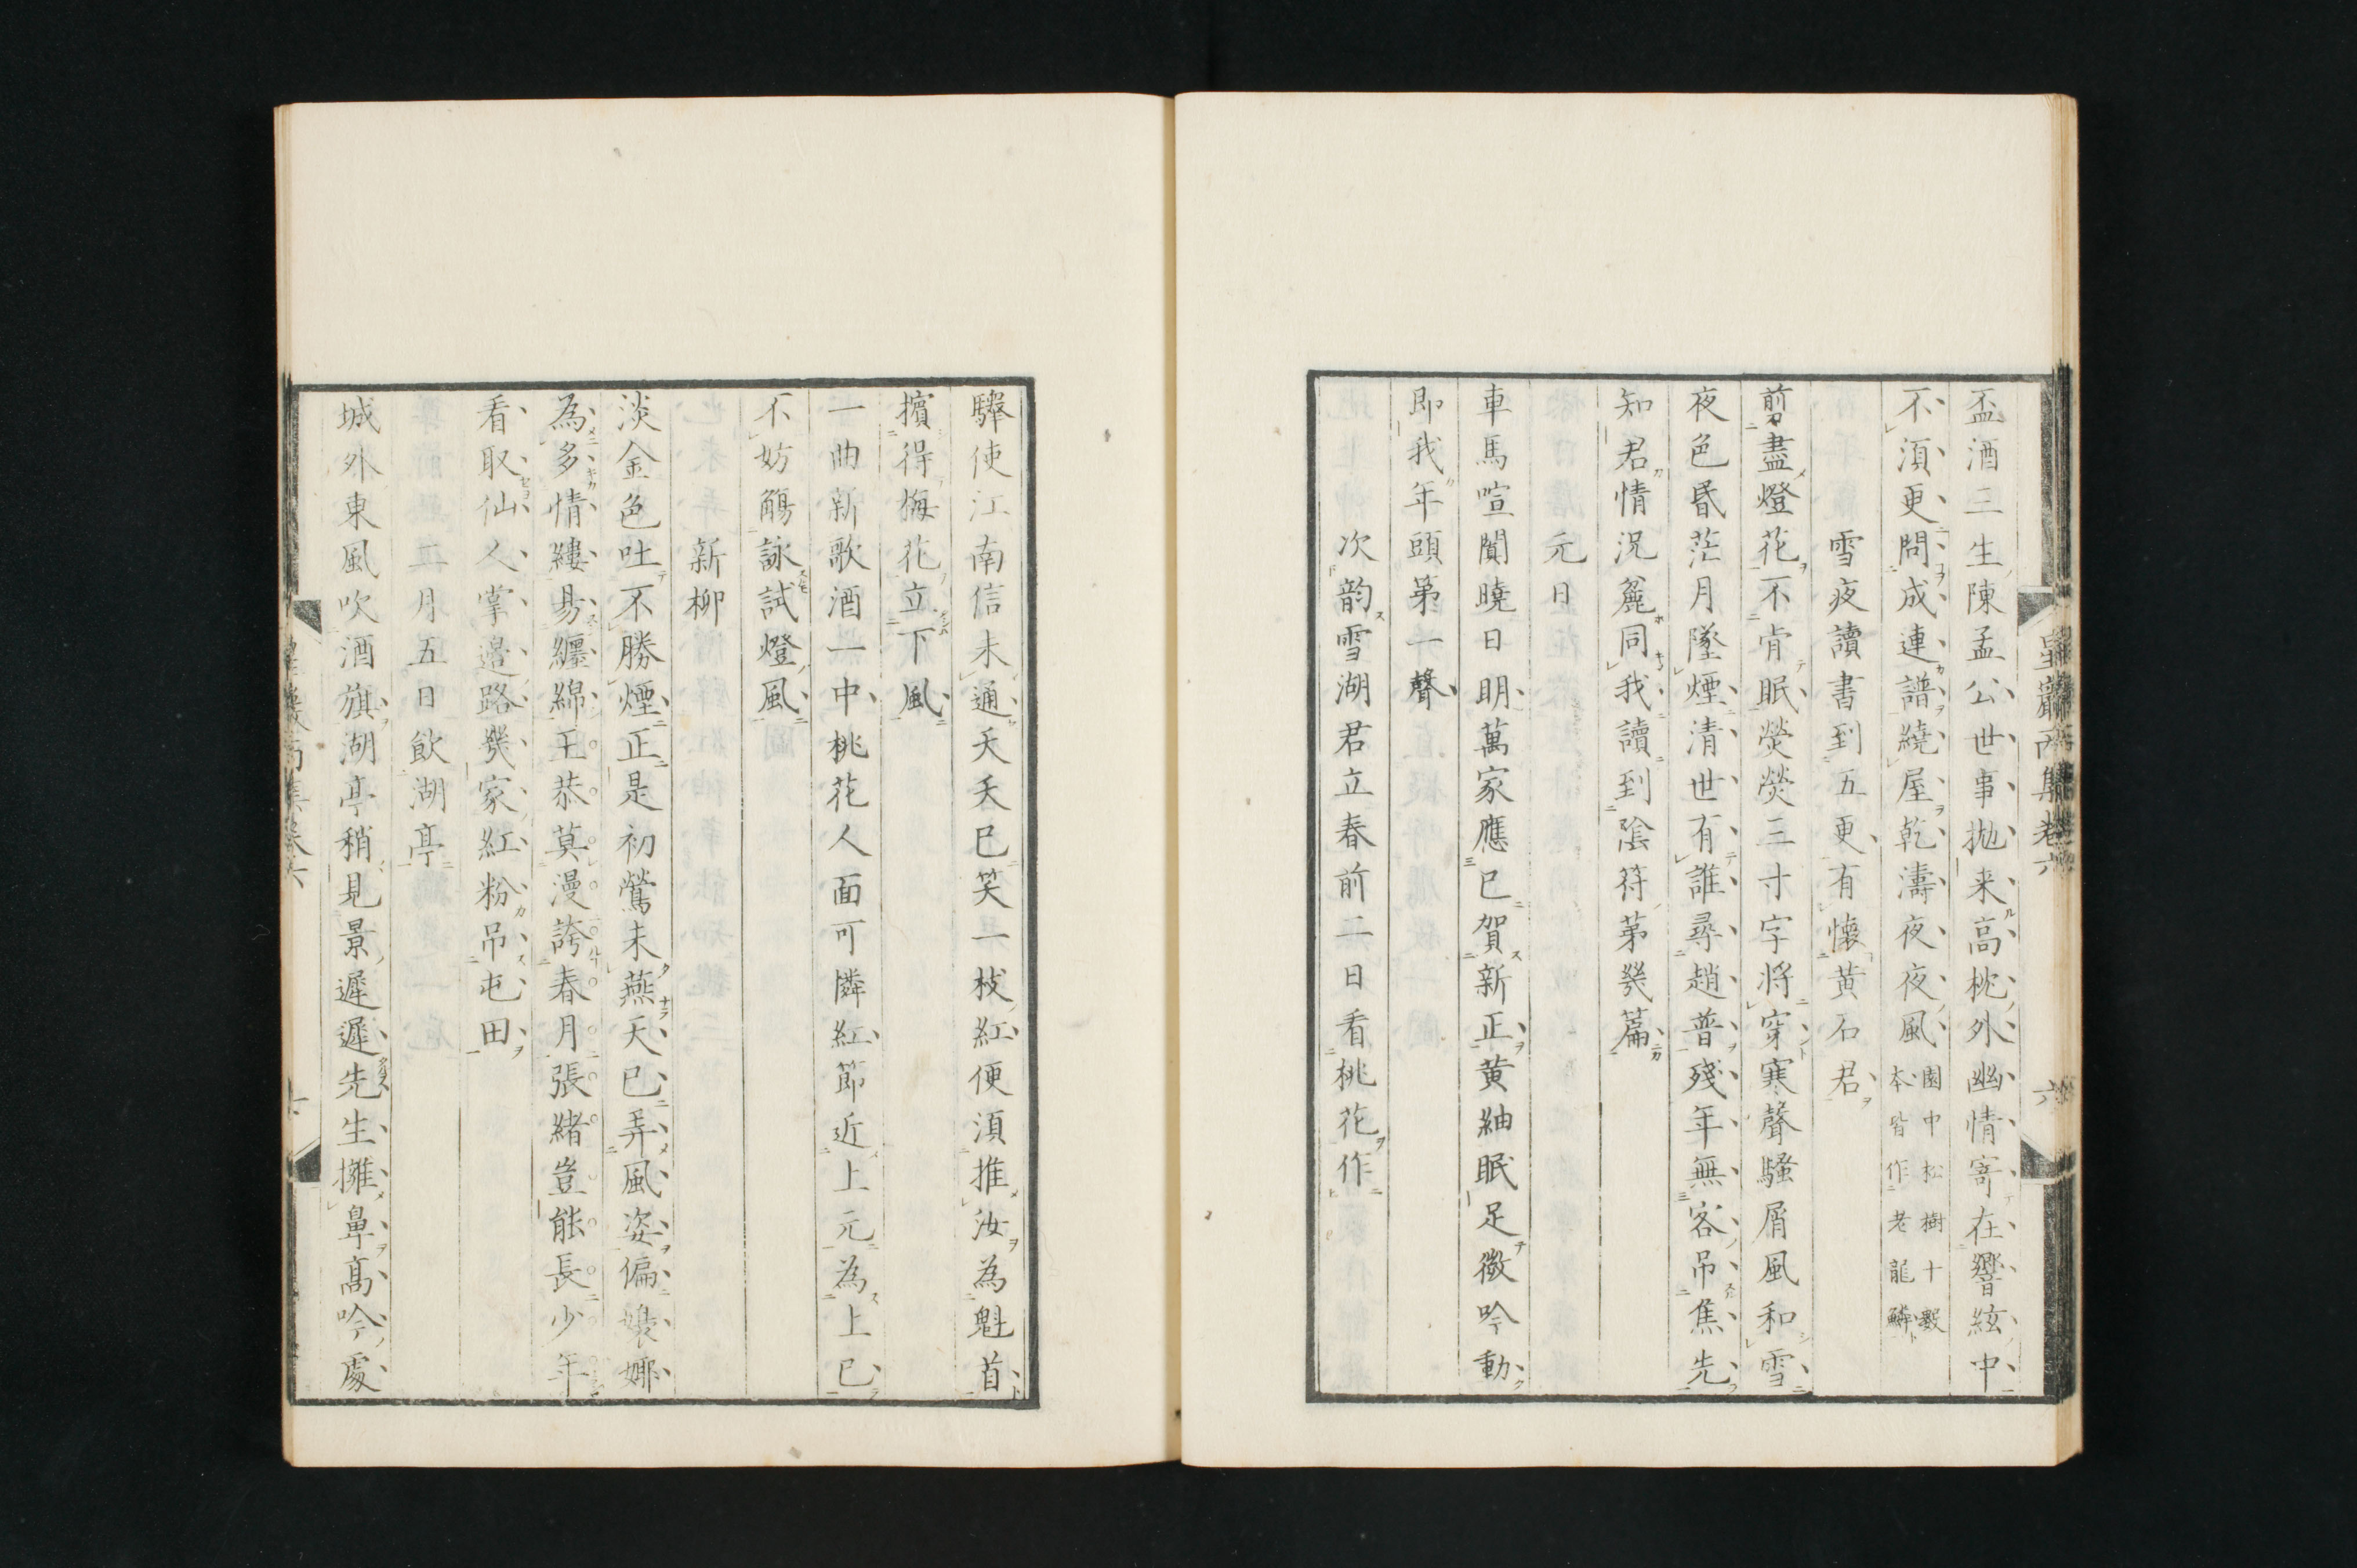 盃酒三生陳孟公世事拋来高枕外幽情寄在響絃中
不須更問成連譜繞屋乾濤夜夜風園中松樹十數本皆作老龍鱗
雪夜讀書到五更有懷黄石君
剪盡燈花不肯眠熒熒三寸字将穿寒聲騷屑風和雪
夜色昏茫月墜煙清世有誰尋趙普殘年無客吊焦先
知君情況麁同我讀到陰符苐幾篇
元日
車馬喧闐曉日明萬家應已賀新正黄紬眠足微吟動
即我年頭第一聲
次韵雪湖君立春前二日看桃花作
驛使江南信未通夭夭已笑一枝紅便須推汝為魁首
擯得梅花立下風
一曲新歌酒一中桃花人面可憐紅節近上元為上巳
不妨觴詠試燈風
新柳
淡金色吐不勝煙正是初鶯未燕天已弄風姿偏嫋娜
為多情縷易纏綿王恭莫漫誇春月張緒豈能長少年
看取仙人掌邉路幾家紅粉吊屯田
二月五日飲湖亭
城外東風吹酒旗湖亭稍見景遲遲先生擁鼻高吟處